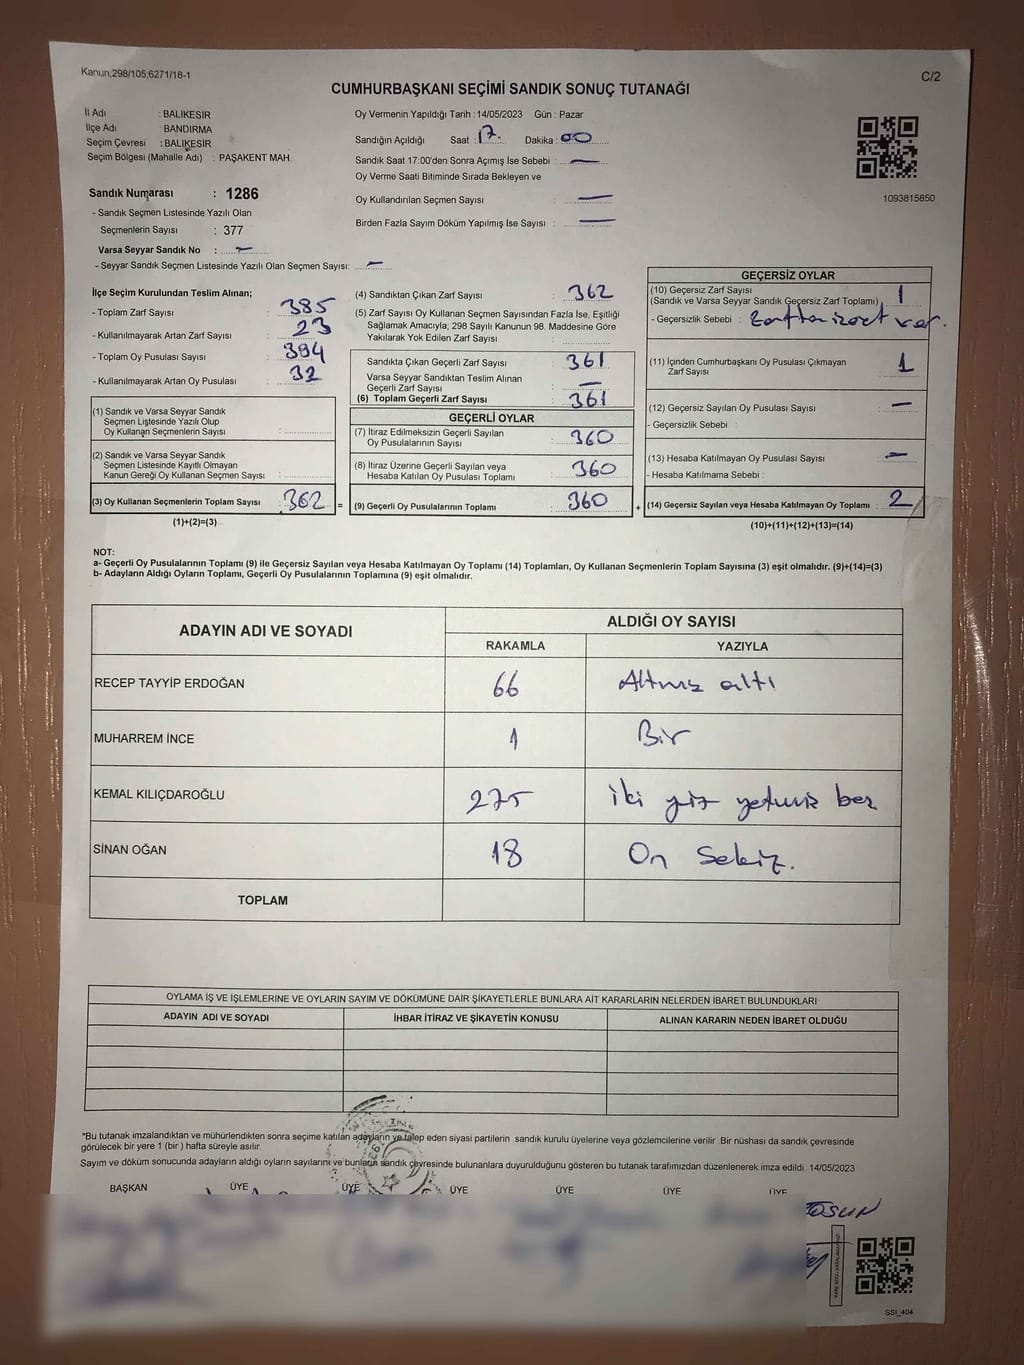 Kanun;298/105;6271/18-1
C/2
CUMHURBAŞKANI SEÇİMİ SANDIK SONUÇ TUTANAĞI
İl Adı : BALIKESİR
İlçe Adı : BANDIRMA
Seçim Çevresi : BALIKESİR
Seçim Bölgesi (Mahalle Adı) : PAŞAKENT MAH.
Sandık Numarası : 1286
- Sandık Seçmen Listesinde Yazılı Olan
Seçmenlerin Sayısı : 377
Varsa Seyyar Sandık No : –
- Seyyar Sandık Seçmen Listesinde Yazılı Olan Seçmen Sayısı: –
Oy Vermenin Yapıldığı Tarih : 14/05/2023 Gün : Pazar
Sandığın Açıldığı Saat : 17. Dakika : 00
Sandık Saat 17:00'den Sonra Açımış İse Sebebi : —
Oy Verme Saati Bitiminde Sırada Bekleyen ve
Oy Kullandırılan Seçmen Sayısı : —
Birden Fazla Sayım Döküm Yapılmış İse Sayısı : —
1093815850
İlçe Seçim Kurulundan Teslim Alınan;
- Toplam Zarf Sayısı : 385
- Kullanılmayarak Artan Zarf Sayısı : 23
- Toplam Oy Pusulası Sayısı : 394
- Kullanılmayarak Artan Oy Pusulası : 32
(1) Sandık ve Varsa Seyyar Sandık
Seçmen Listesinde Yazılı Olup
Oy Kullanan Seçmenlerin Sayısı :
(2) Sandık ve Varsa Seyyar Sandık
Seçmen Listesinde Kayıtlı Olmayan
Kanun Gereği Oy Kullanan Seçmen Sayısı :
(3) Oy Kullanan Seçmenlerin Toplam Sayısı : 362 =
(1)+(2)=(3)
(4) Sandıktan Çıkan Zarf Sayısı : 362
(5) Zarf Sayısı Oy Kullanan Seçmen Sayısından Fazla İse, Eşitliği
Sağlamak Amacıyla; 298 Sayılı Kanunun 98. Maddesine Göre
Yakılarak Yok Edilen Zarf Sayısı :
Sandıkta Çıkan Geçerli Zarf Sayısı : 361
Varsa Seyyar Sandıktan Teslim Alınan
Geçerli Zarf Sayısı : –
(6) Toplam Geçerli Zarf Sayısı : 361
GEÇERLİ OYLAR
(7) İtiraz Edilmeksizin Geçerli Sayılan
Oy Pusulalarının Sayısı : 360
(8) İtiraz Üzerine Geçerli Sayılan veya
Hesaba Katılan Oy Pusulası Toplamı : 360
(9) Geçerli Oy Pusulalarının Toplamı : 360 +
GEÇERSİZ OYLAR
(10) Geçersiz Zarf Sayısı
(Sandık ve Varsa Seyyar Sandık Geçersiz Zarf Toplamı) 1
- Geçersizlik Sebebi : var.
(11) İçinden Cumhurbaşkanı Oy Pusulası Çıkmayan
Zarf Sayısı : 1
(12) Geçersiz Sayılan Oy Pusulası Sayısı : –
- Geçersizlik Sebebi :
(13) Hesaba Katılmayan Oy Pusulası Sayısı : –
- Hesaba Katılmama Sebebi :
(14) Geçersiz Sayılan veya Hesaba Katılmayan Oy Toplamı : 2
(10)+(11)+(12)+(13)=(14)
NOT:
a- Geçerli Oy Pusulalarının Toplamı (9) ile Geçersiz Sayılan veya Hesaba Katılmayan Oy Toplamı (14) Toplamları, Oy Kullanan Seçmenlerin Toplam Sayısına (3) eşit olmalıdır. (9)+(14)=(3)
b- Adayların Aldığı Oyların Toplamı, Geçerli Oy Pusulalarının Toplamına (9) eşit olmalıdır.
ADAYIN ADI VE SOYADI
ALDIĞI OY SAYISI
RAKAMLA YAZIYLA
RECEP TAYYİP ERDOĞAN 66 Altmış altı
MUHARREM İNCE 1 Bir
KEMAL KILIÇDAROĞLU 275 iki yüz yetmiş beş
SİNAN OĞAN 18 On Sekiz.
TOPLAM
OYLAMA İŞ VE İŞLEMLERİNE VE OYLARIN SAYIM VE DÖKÜMÜNE DAİR ŞİKAYETLERLE BUNLARA AİT KARARLARIN NELERDEN İBARET BULUNDUKLARI
ADAYIN ADI VE SOYADI İHBAR İTİRAZ VE ŞİKAYETİN KONUSU ALINAN KARARIN NEDEN İBARET OLDUĞU
*Bu tutanak imzalandıktan ve mühürlendikten sonra seçime katılan adayların ve talep eden siyasi partilerin sandık kurulu üyelerine veya gözlemcilerine verilir .Bir nüshası da sandık çevresinde
görülecek bir yere 1 (bir ) hafta süreyle asılır.
Sayım ve döküm sonucunda adayların aldığı oyların sayılarını ve bunların sandık çevresinde bulunanlara duyurulduğunu gösteren bu tutanak tarafımızdan düzenlenerek imza edildi. 14/05/2023
BAŞKAN ÜYE ÜYE ÜYE ÜYE ÜYE ÜYE
TOSUN
SSI_404